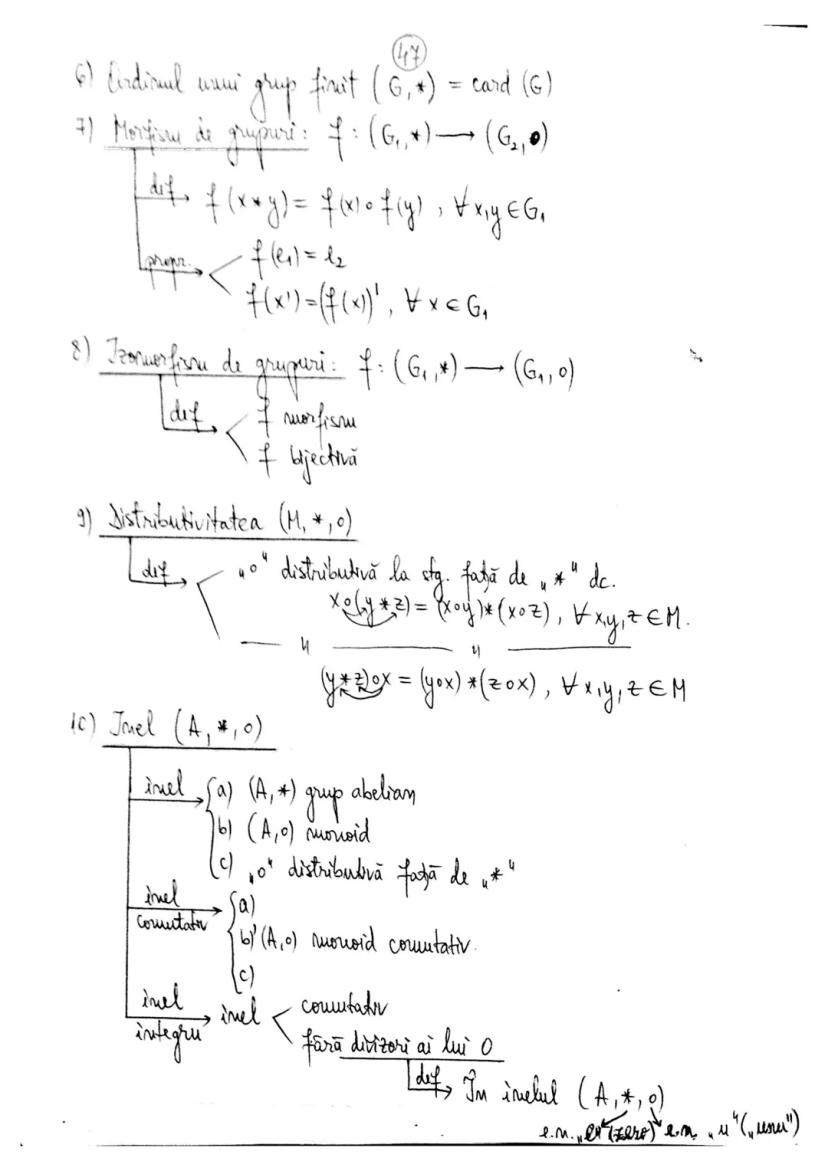 47
6) Ordinul unui grup finit (G,*) = card (G)
7) Morfism de grupuri: f: (G₁,*) → (G₂,∘)
def → f(x*y) = f(x)∘f(y), ∀x,y∈G₁
propr. → f(e₁) = e₂
f(x') = (f(x))', ∀x∈G₁
8) Izomorfism de grupuri: f: (G₁,*) → (G₁,∘)
def → f morfism
f bijectivă
9) Distributivitatea (M,*,∘)
def → „∘" distributivă la stg. față de „*" dc.
x∘(y*z) = (x∘y)*(x∘z), ∀x,y,z∈M.
— " — " —
(y*z)∘x = (y∘x)*(z∘x), ∀x,y,z∈M
10) Inel (A,*,∘)
inel → a) (A,*) grup abelian
b) (A,∘) monoid
c) „∘" distributivă față de „*"
inel comutativ → a)
b)' (A,∘) monoid comutativ.
c)
inel integru → inel comutativ
fără divizori ai lui 0
def → În inelul (A,*,∘)
e.n. „e" (zero) e.n. „u" („unu")